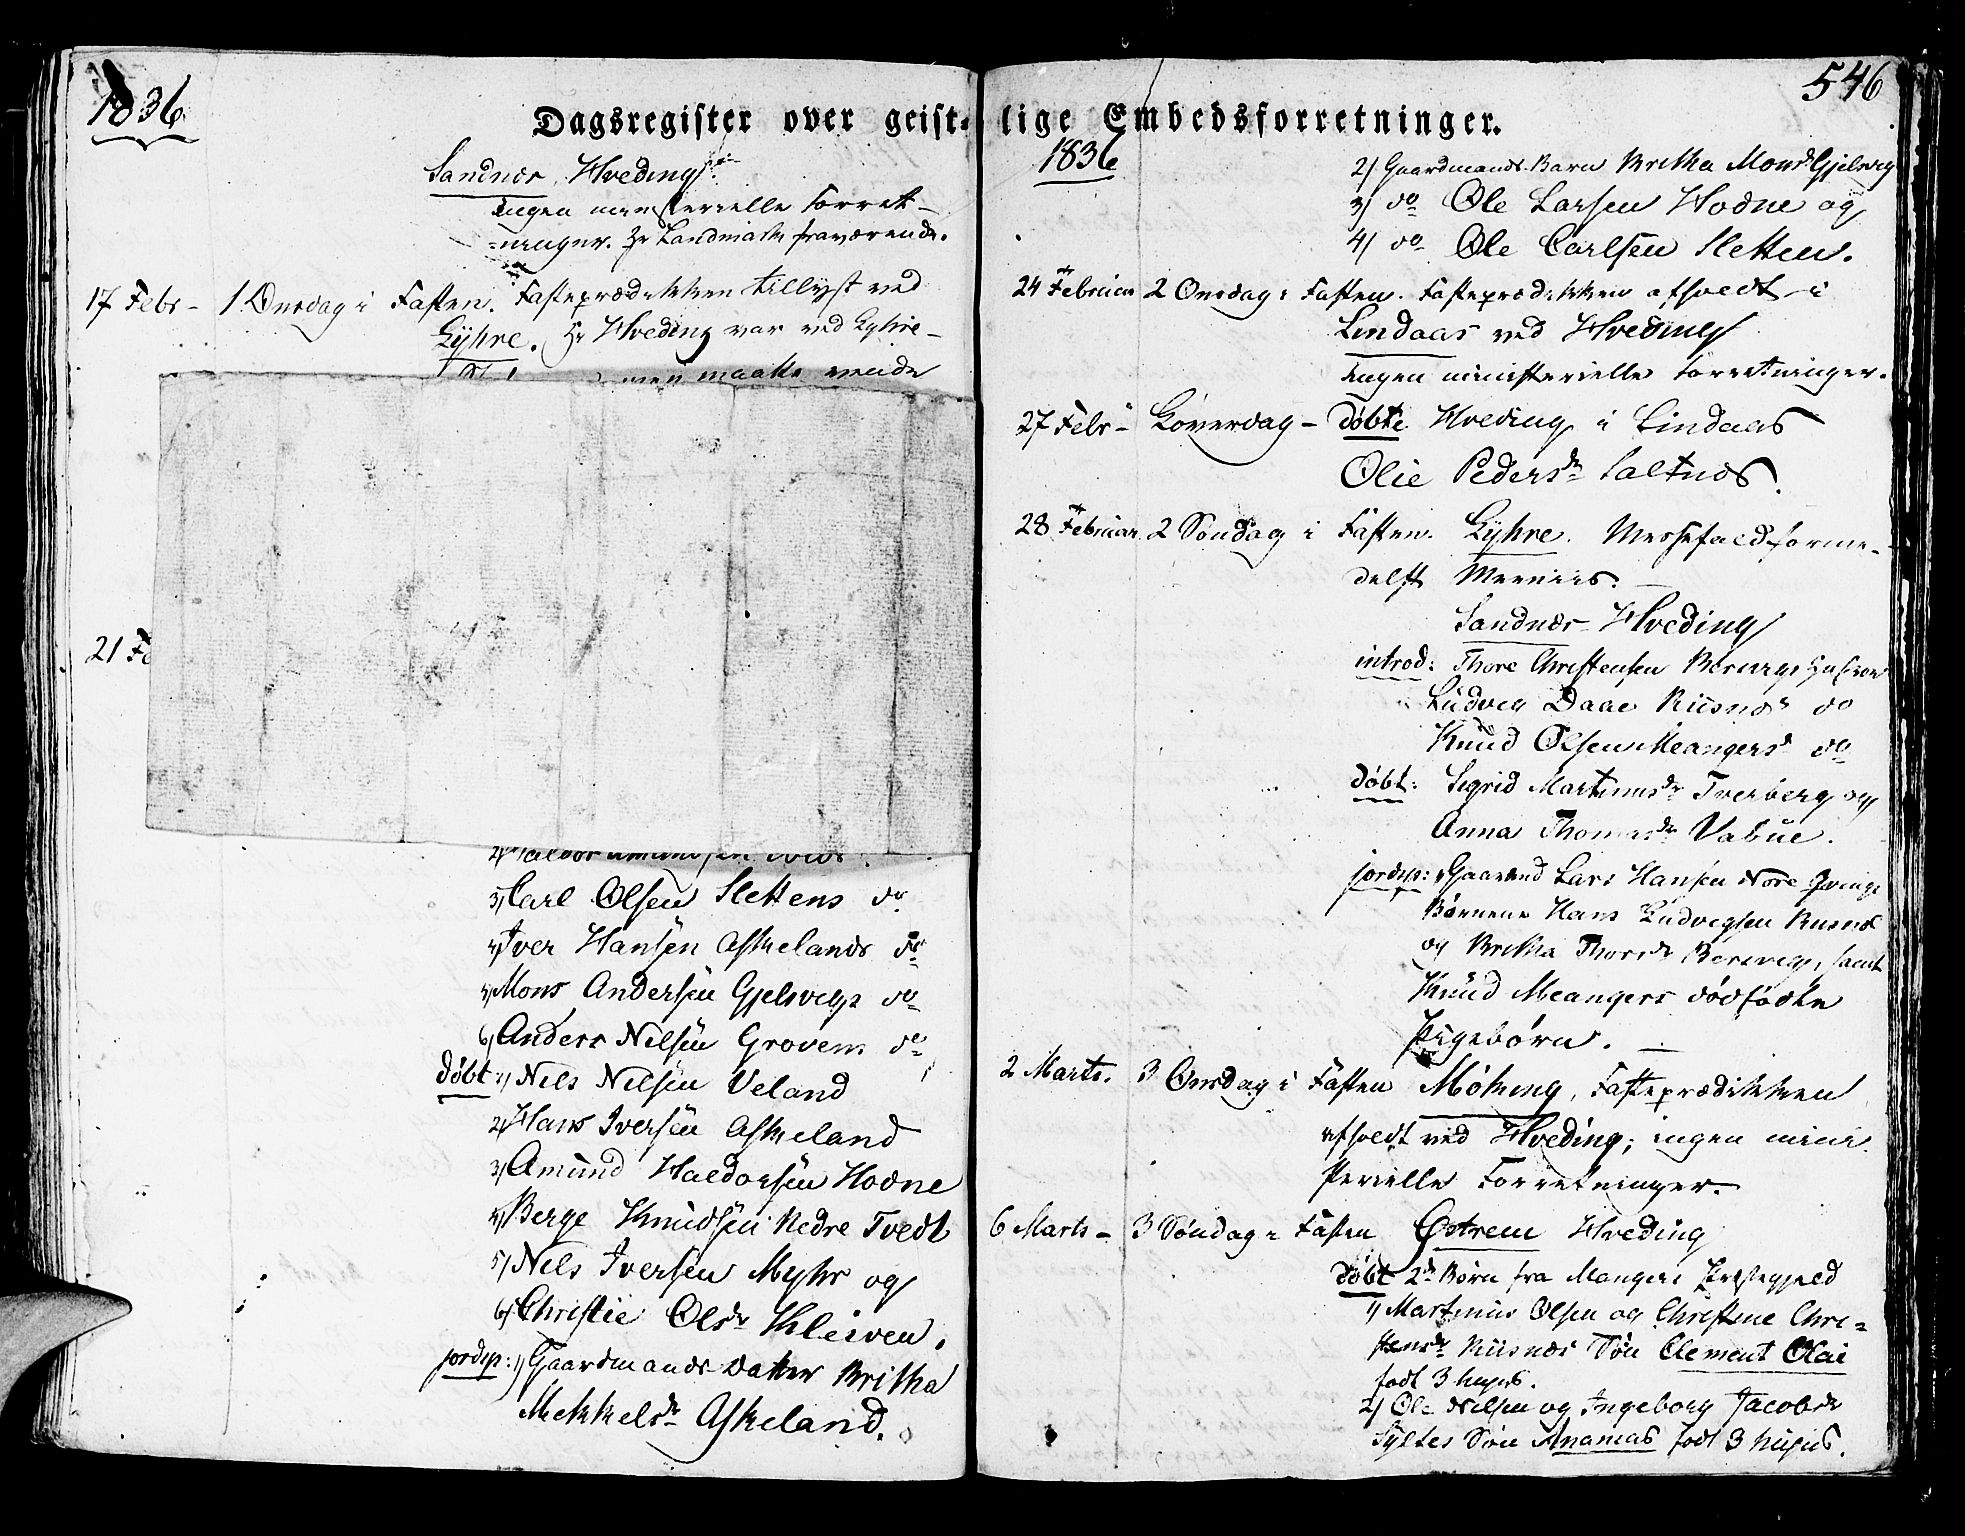 1836
Dagsregister over geist-
Sandnæs, Hveding
Ingen ministerielle Forret-
-ninger. Hr Landmark fraværende.
17 Febr - 1 Onsdag i Fasten. Fasteprædikken tillyst ved
Gyhre. Hr Hveding var ved Gyhre-
men maatte vende
21 Fe
3) Carl Olsen Slettens do
4) Iver Hansen Askelands do
5) Mons Andersen Gjelsvigs do
6) Anders Nilsen Grovens do
døbt: 1) Nels Nelsen Veland
2) Hans Iversen Askeland
3) Amund Haldorsen Hodne
4) Berge Knudsen Nedre Tvedt
5) Nels Iversen Myhr og
6) Christie Olsdr Kleiven.
jordsp: 1) Gaardmands Datter Britha
Mekkelsdr Askeland.
546
lige Embedsforretninger.
1836
2) Gaardmands Barn Britha Monsdr Gjelsvig
3) do Ole Larsen Hodne og
4) do Ole Carlsen Sletten.
24 Februar 2 Onsdag i Fasten. Fasteprædikken afholdt i
Lindaas ved Hveding
Ingen ministerielle Forretninger.
27 Febr - Løverdag - døbte Hveding i Lindaas
Olie Pedersdr Saltnes.
28 Februar 2 Søndag i Fasten. Gyhre. Messefald forme-
delst Meenies.
Sandnæs Hveding
introd: Thore Christensen Hustroe
Ludvig Daae Riisnæs do
Knud Olsen Meangers do
døbt: Sigrid Martinusdr Tverberg og
Anna Thomasdr Vabøe.
jordsp: Gaardmd Lars Hansen Nore
Børnene Hans Ludvigsen Rusnæs
og Britha Thoresdr samt
Knud Meangers dødfødte
Pigebørn.
2 Marts. 3 Onsdag i Fasten Møking, Fasteprædikken
afholdt ved Hveding; ingen mini
sterielle Forretninger.
6 Marts - 3 Søndag i Fasten Østrem Hveding
døbt 2de Børn fra Mangers Præstegjeld
1) Martinus Olsen og Christine Chri-
stensdr Riisnæs Søn Clement Olai
født 3 hujus.
2) Ole Nilsen og Ingeborg Jacobsdr
Syltes Søn Ananias født 3 hujus.